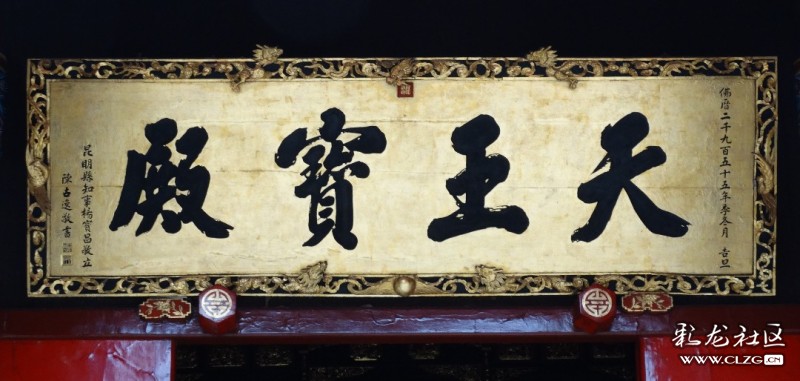 天王寶殿
佛曆二千九百五十五年季冬月 吉旦
昆明縣知事 寶昌敬立
陳古逸敬書
彩龙社区
WWW.CLZG.CN